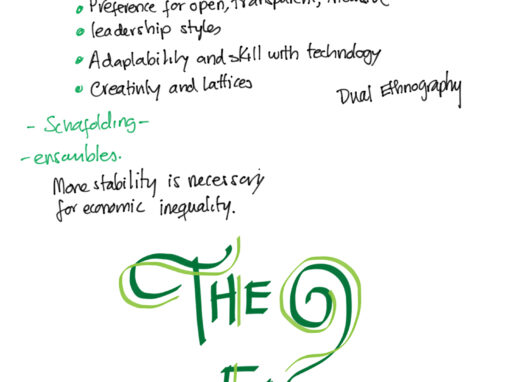 Preference for open, transparent,
leadership styles
Adaptability and skill with technology
Creativity and lattices
Dual Ethnography
- Schafdding -
- ensanbles.
More stability is necessary
for economic inequality.
THE